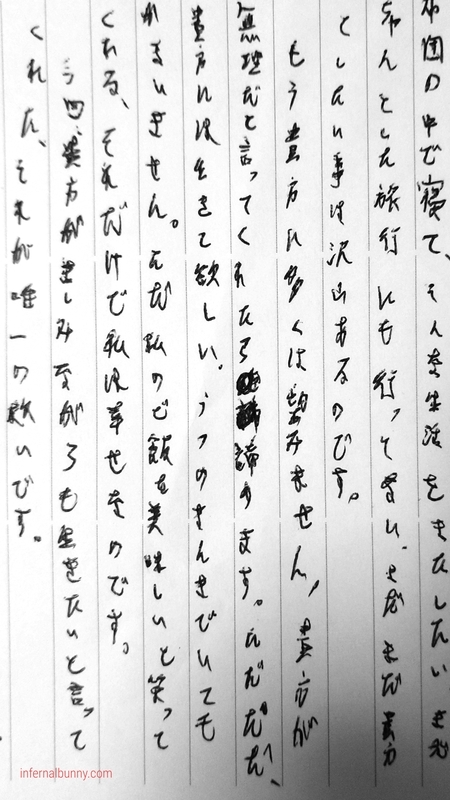 布団の中で寝て、そんな生活をまたしたい
ちゃんとした旅行にも行ってない。まだまだ貴方
としたい事は沢山あるのです。
もう貴方に多くは望みません、貴方が
無理だと言ってくれたら諦めます。ただただ、
貴方には生きて欲しい。うつのまんまでいても
かまいません。ただ私のご飯を美味しいと笑って
くれる、それだけで私は幸せなのです。
今回貴方が苦しみながらも生きたいと言って
くれた、それが唯一の救いです。
infernalbunny.com